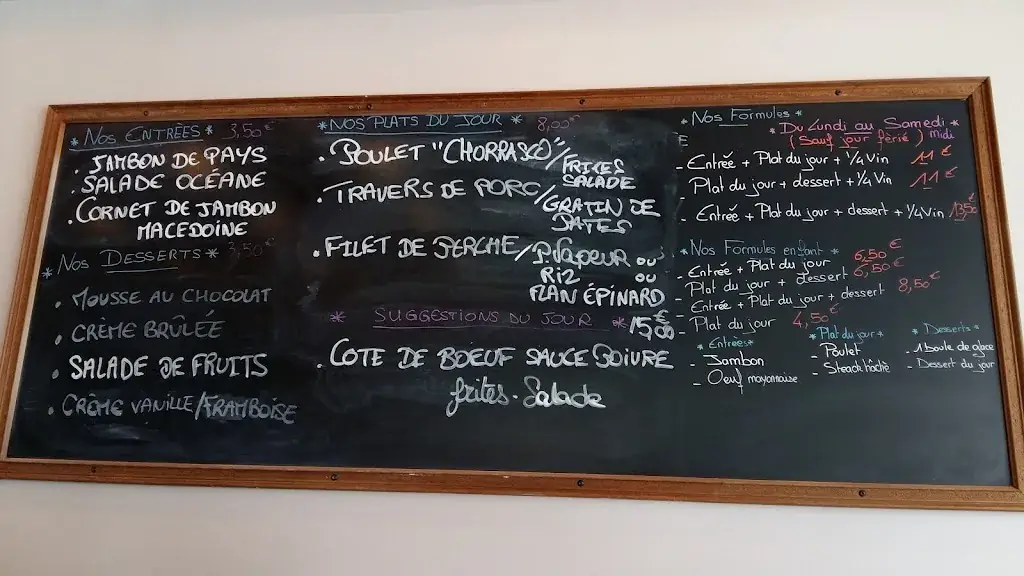 * Nos Entrées * 3,50€
. Jambon de pays
. Salade océane
. Cornet de jambon
macedoine
* Nos Desserts * 3,50€
. Mousse au chocolat
. Crème brûlée
. Salade de fruits
. Crème vanille/framboise
* Nos plats du jour * 8,00€
. Poulet "Chorrasco"/frites
salade
. Travers de porc/gratin de
pates
. Filet de perche/P. vapeur ou
riz ou
flan épinard
* Suggestions du jour * 15,00€
. Cote de boeuf sauce poivre
frites. Salade
* Nos Formules *
* Du Lundi au Samedi *
(Sauf jour férié) midi
- Entrée + Plat du jour + 1/4 Vin 11€
Plat du jour + dessert + 1/4 Vin 11€
- Entrée + Plat du jour + dessert + 1/4 Vin 13,50€
* Nos Formules enfant *
- Entrée + Plat du jour 6,50€
- Plat du jour + dessert 6,50€
- Entrée + Plat du jour + dessert 8,50€
- Plat du jour 4,50€
* Entrées *
- Jambon
- Oeuf mayonnaise
* Plat du jour *
- Poulet
- Steack hâché
* Desserts *
- 1 boule de glace
- Dessert du jour